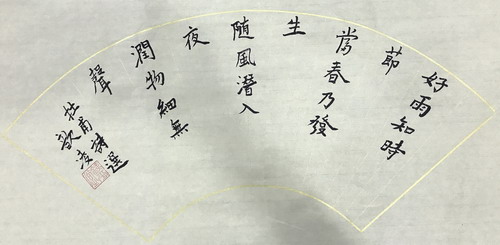 好雨知時
節
當春乃發
生
随風潛入
夜
潤物細無
聲
杜甫詩選